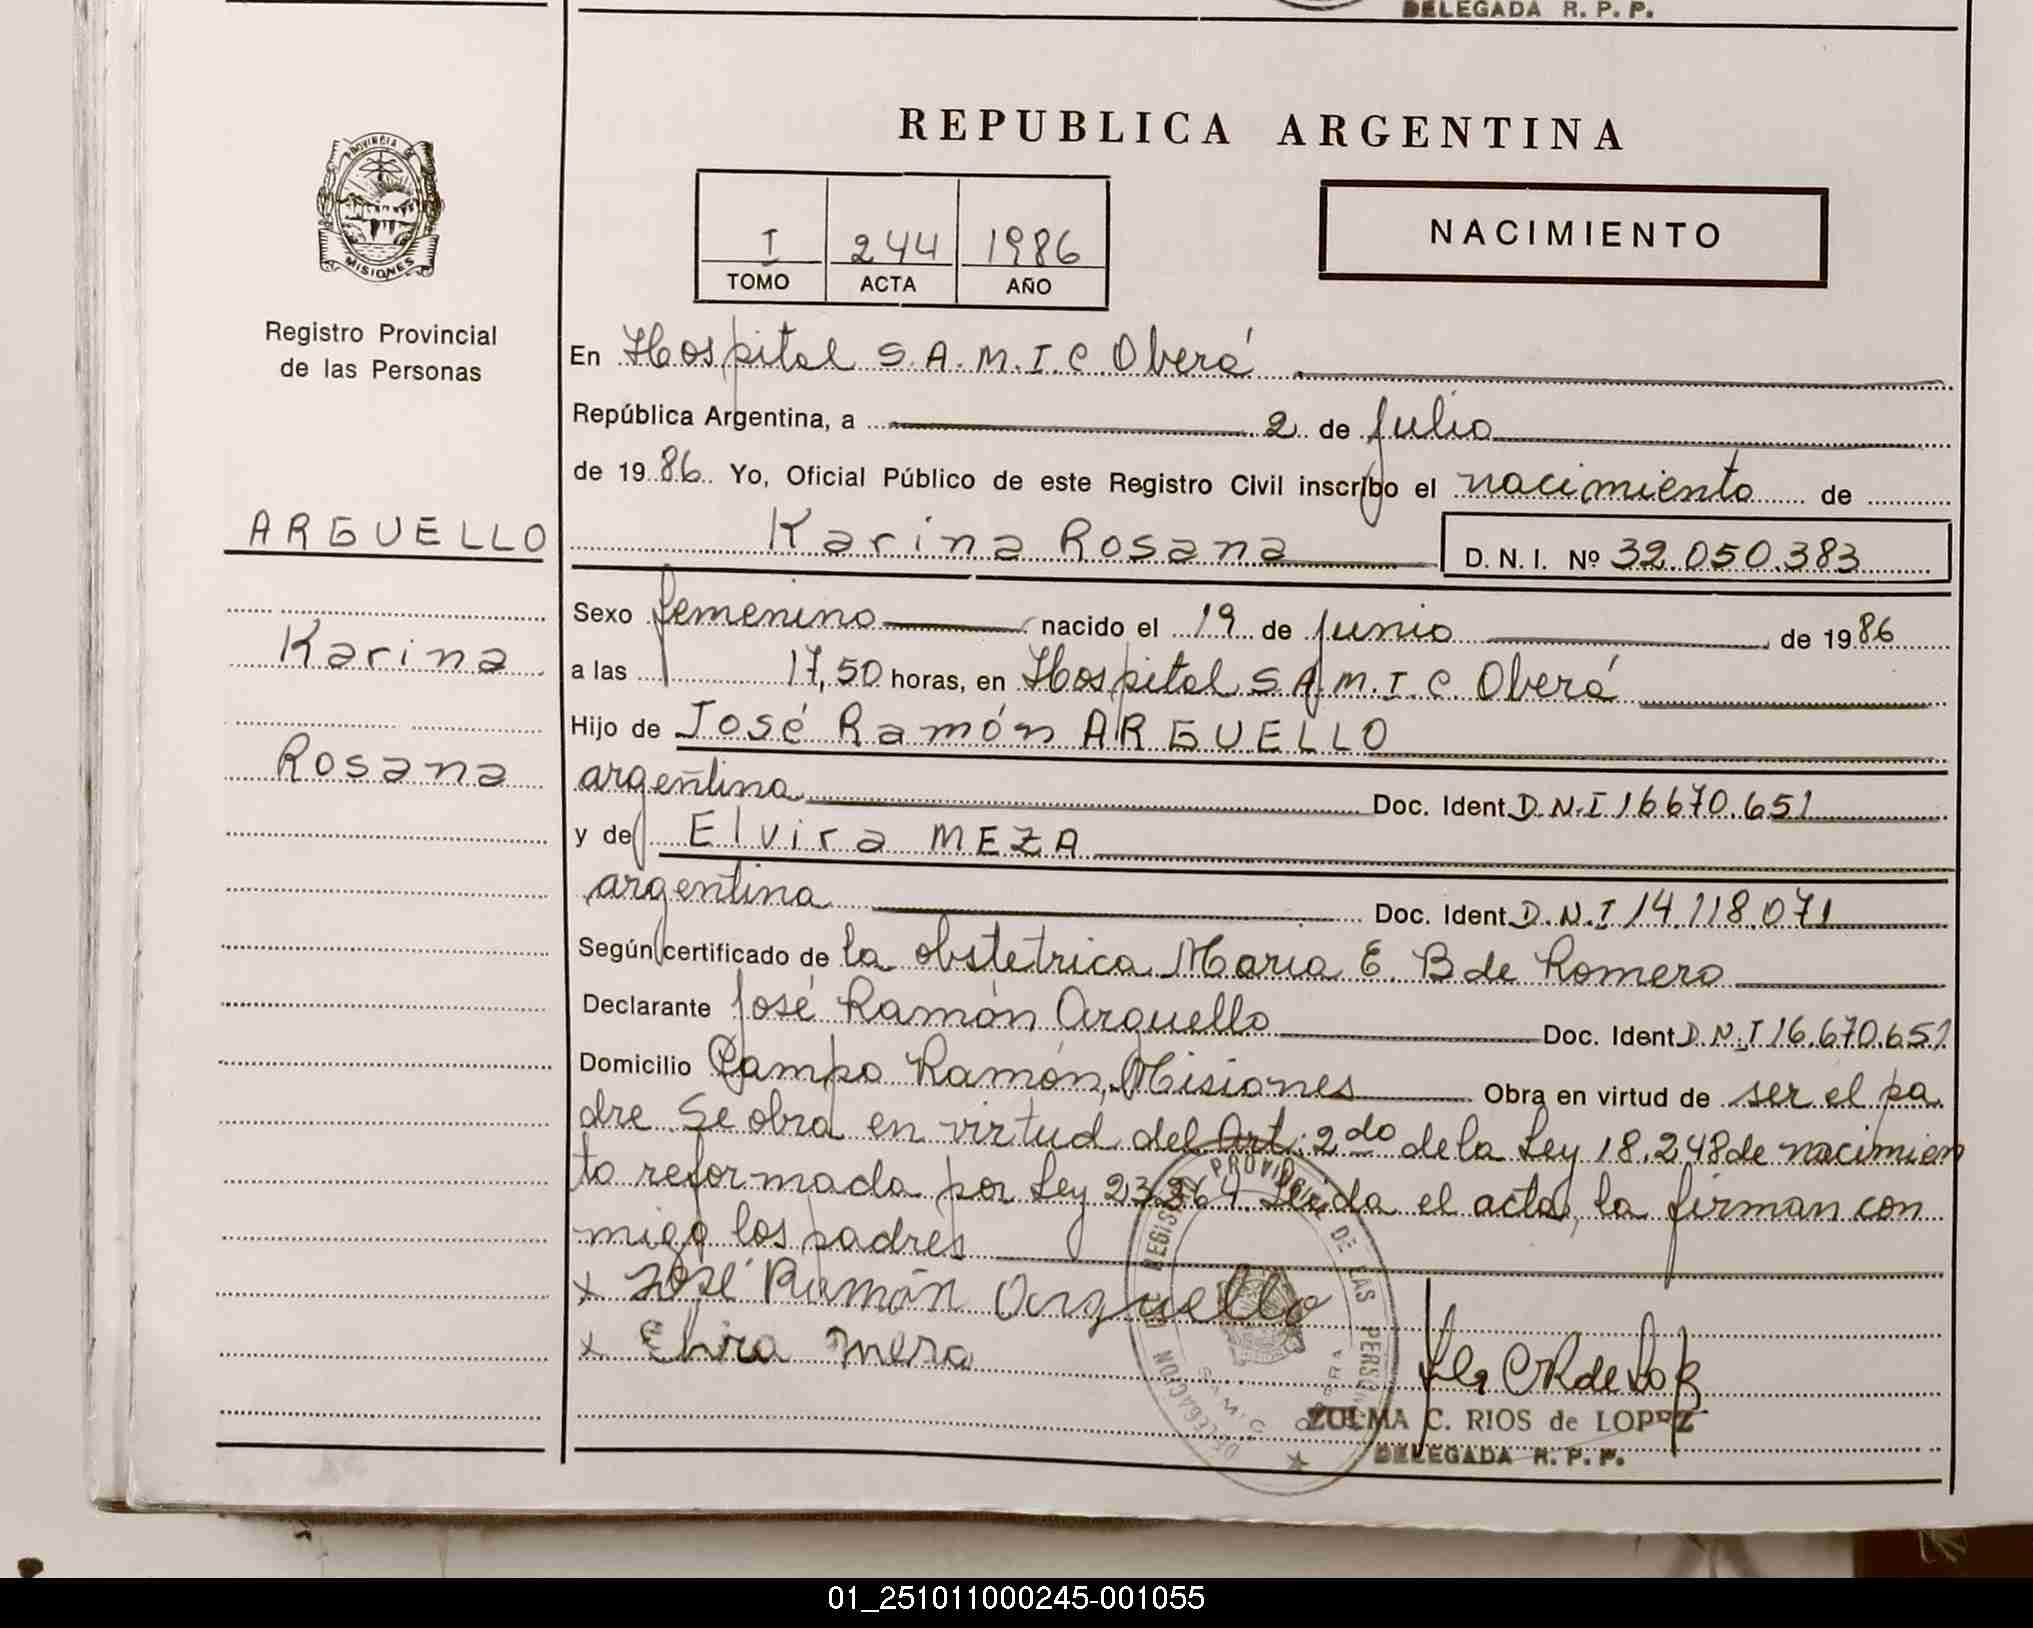 DELEGADA R. P. P.
REPUBLICA ARGENTINA
PROVINCIA DE
MISIONES
I 244 1986
TOMO ACTA AÑO
NACIMIENTO
Registro Provincial
de las Personas
En Hospital S.A.M.I.C. Oberá
República Argentina, a 2 de Julio
de 1986. Yo, Oficial Público de este Registro Civil inscribo el nacimiento de
ARGUELLO
Karina Rosana D. N. I. Nº 32.050.383
Sexo femenino nacido el 19 de Junio de 1986
Karina
a las 17,50 horas, en Hospital S.A.M.I.C Oberá
Hijo de José Ramón ARGUELLO
Rosana
argentina Doc. Ident. D.N.I 16670.651
y de Elvira MEZA
argentina Doc. Ident. D.N.I 14.118.071
Según certificado de la obstetrica Maria E. B de Romero
Declarante José Ramón Arguello Doc. Ident. D.N.I 16.670.651
Domicilio Campo Ramón, Misiones Obra en virtud de ser el pa
dre. Se obra en virtud del Art: 2do de la Ley 18.248 de nacimien
to reformada por Ley 23264. Leida el acta, la firman con
migo los padres
x José Ramón Arguello
x Elvira Meza
REGISTRO PROVINCIAL DE LAS PERSONAS
DELEGACION
S.A.M.I.C. OBERA
ZULMA C. RIOS de LOPEZ
DELEGADA R. P. P.
01_251011000245-001055